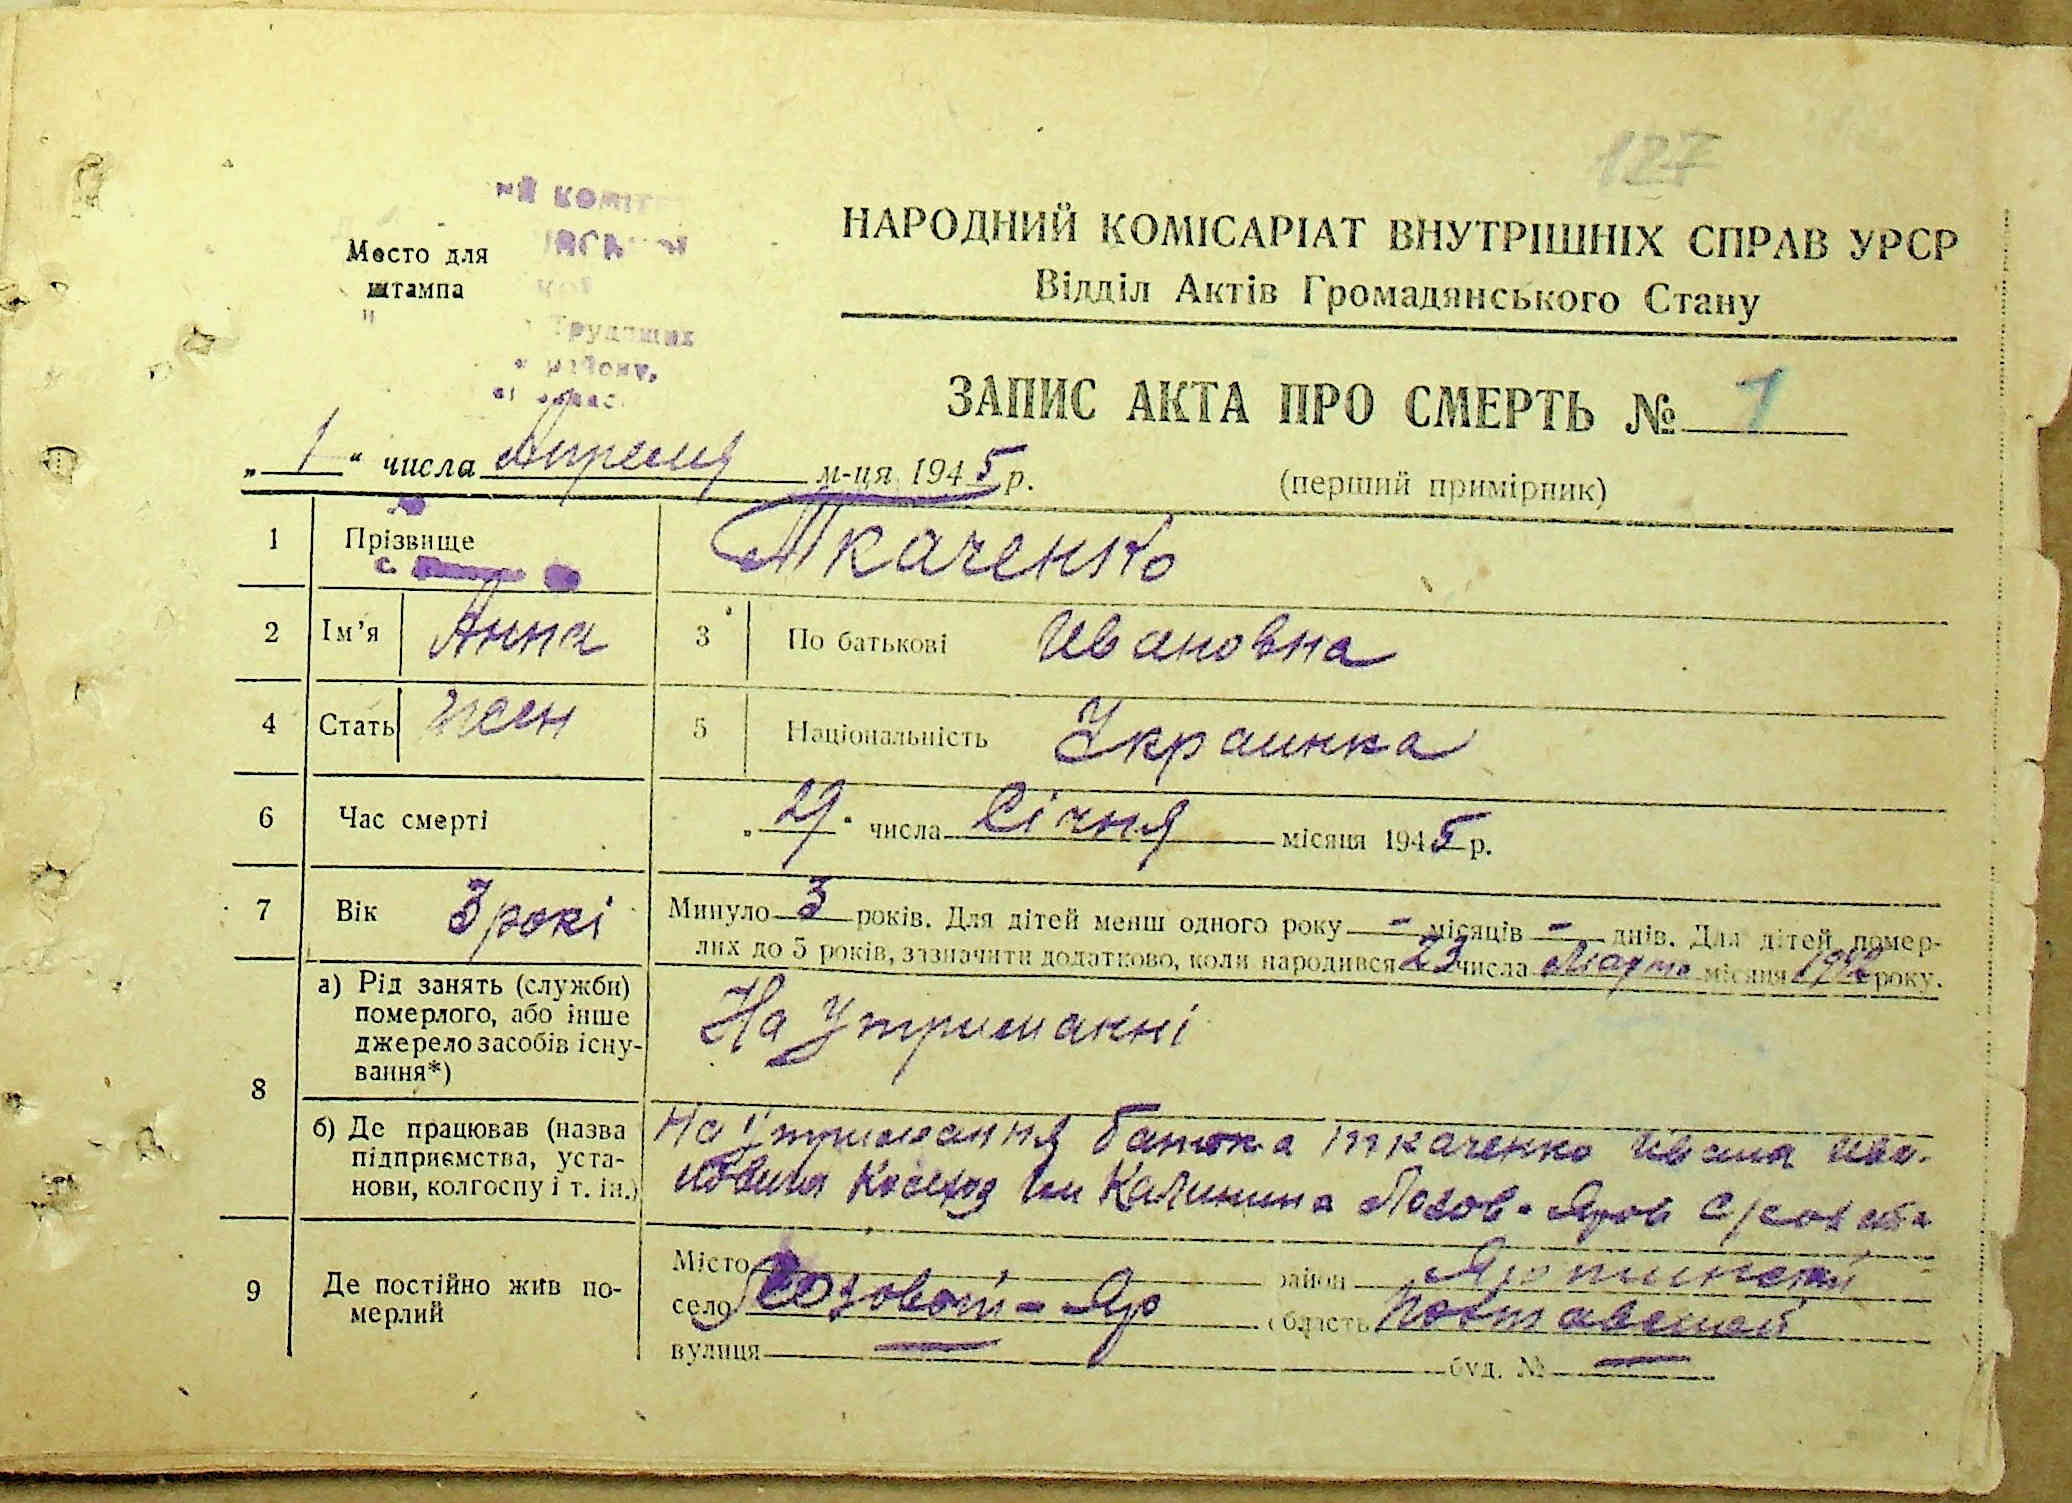 127
НАРОДНИЙ КОМІСАРІАТ ВНУТРІШНІХ СПРАВ УРСР
Відділ Актів Громадянського Стану
Место для
штампа
ий коміт
Трудящих
району,
ЗАПИС АКТА ПРО СМЕРТЬ № 1
„ 1 “ числа Апреля м-ця 1945 р.
(перший примірник)
1 Прізвище Ткаченко
с.
2 Ім’я Анна 3 По батькові Ивановна
4 Стать жен 5 Національність Украинка
6 Час смерті „ 29 “ числа Січня місяця 1945 р.
7 Вік 3 рокі Минуло 3 років. Для дітей менш одного року - місяців - днів. Для дітей помер-
лих до 5 років, зазначити додатково, коли народився 23 числа Марта місяця року.
8 а) Рід занять (служби)
померлого, або інше
джерело засобів існу-
вання*)
На Утриманні
б) Де працював (назва
підприємства, уста-
нови, колгоспу і т. ін.)
На Утримання батька Ткаченко Ивана Ива-
новича Колхоз им Калинина Лозов-Яров с/совета
9 Де постійно жив по-
мерлий
Місто район Яготинский
село Лозовой-Яр область Полтавской
вулиця — буд. № —